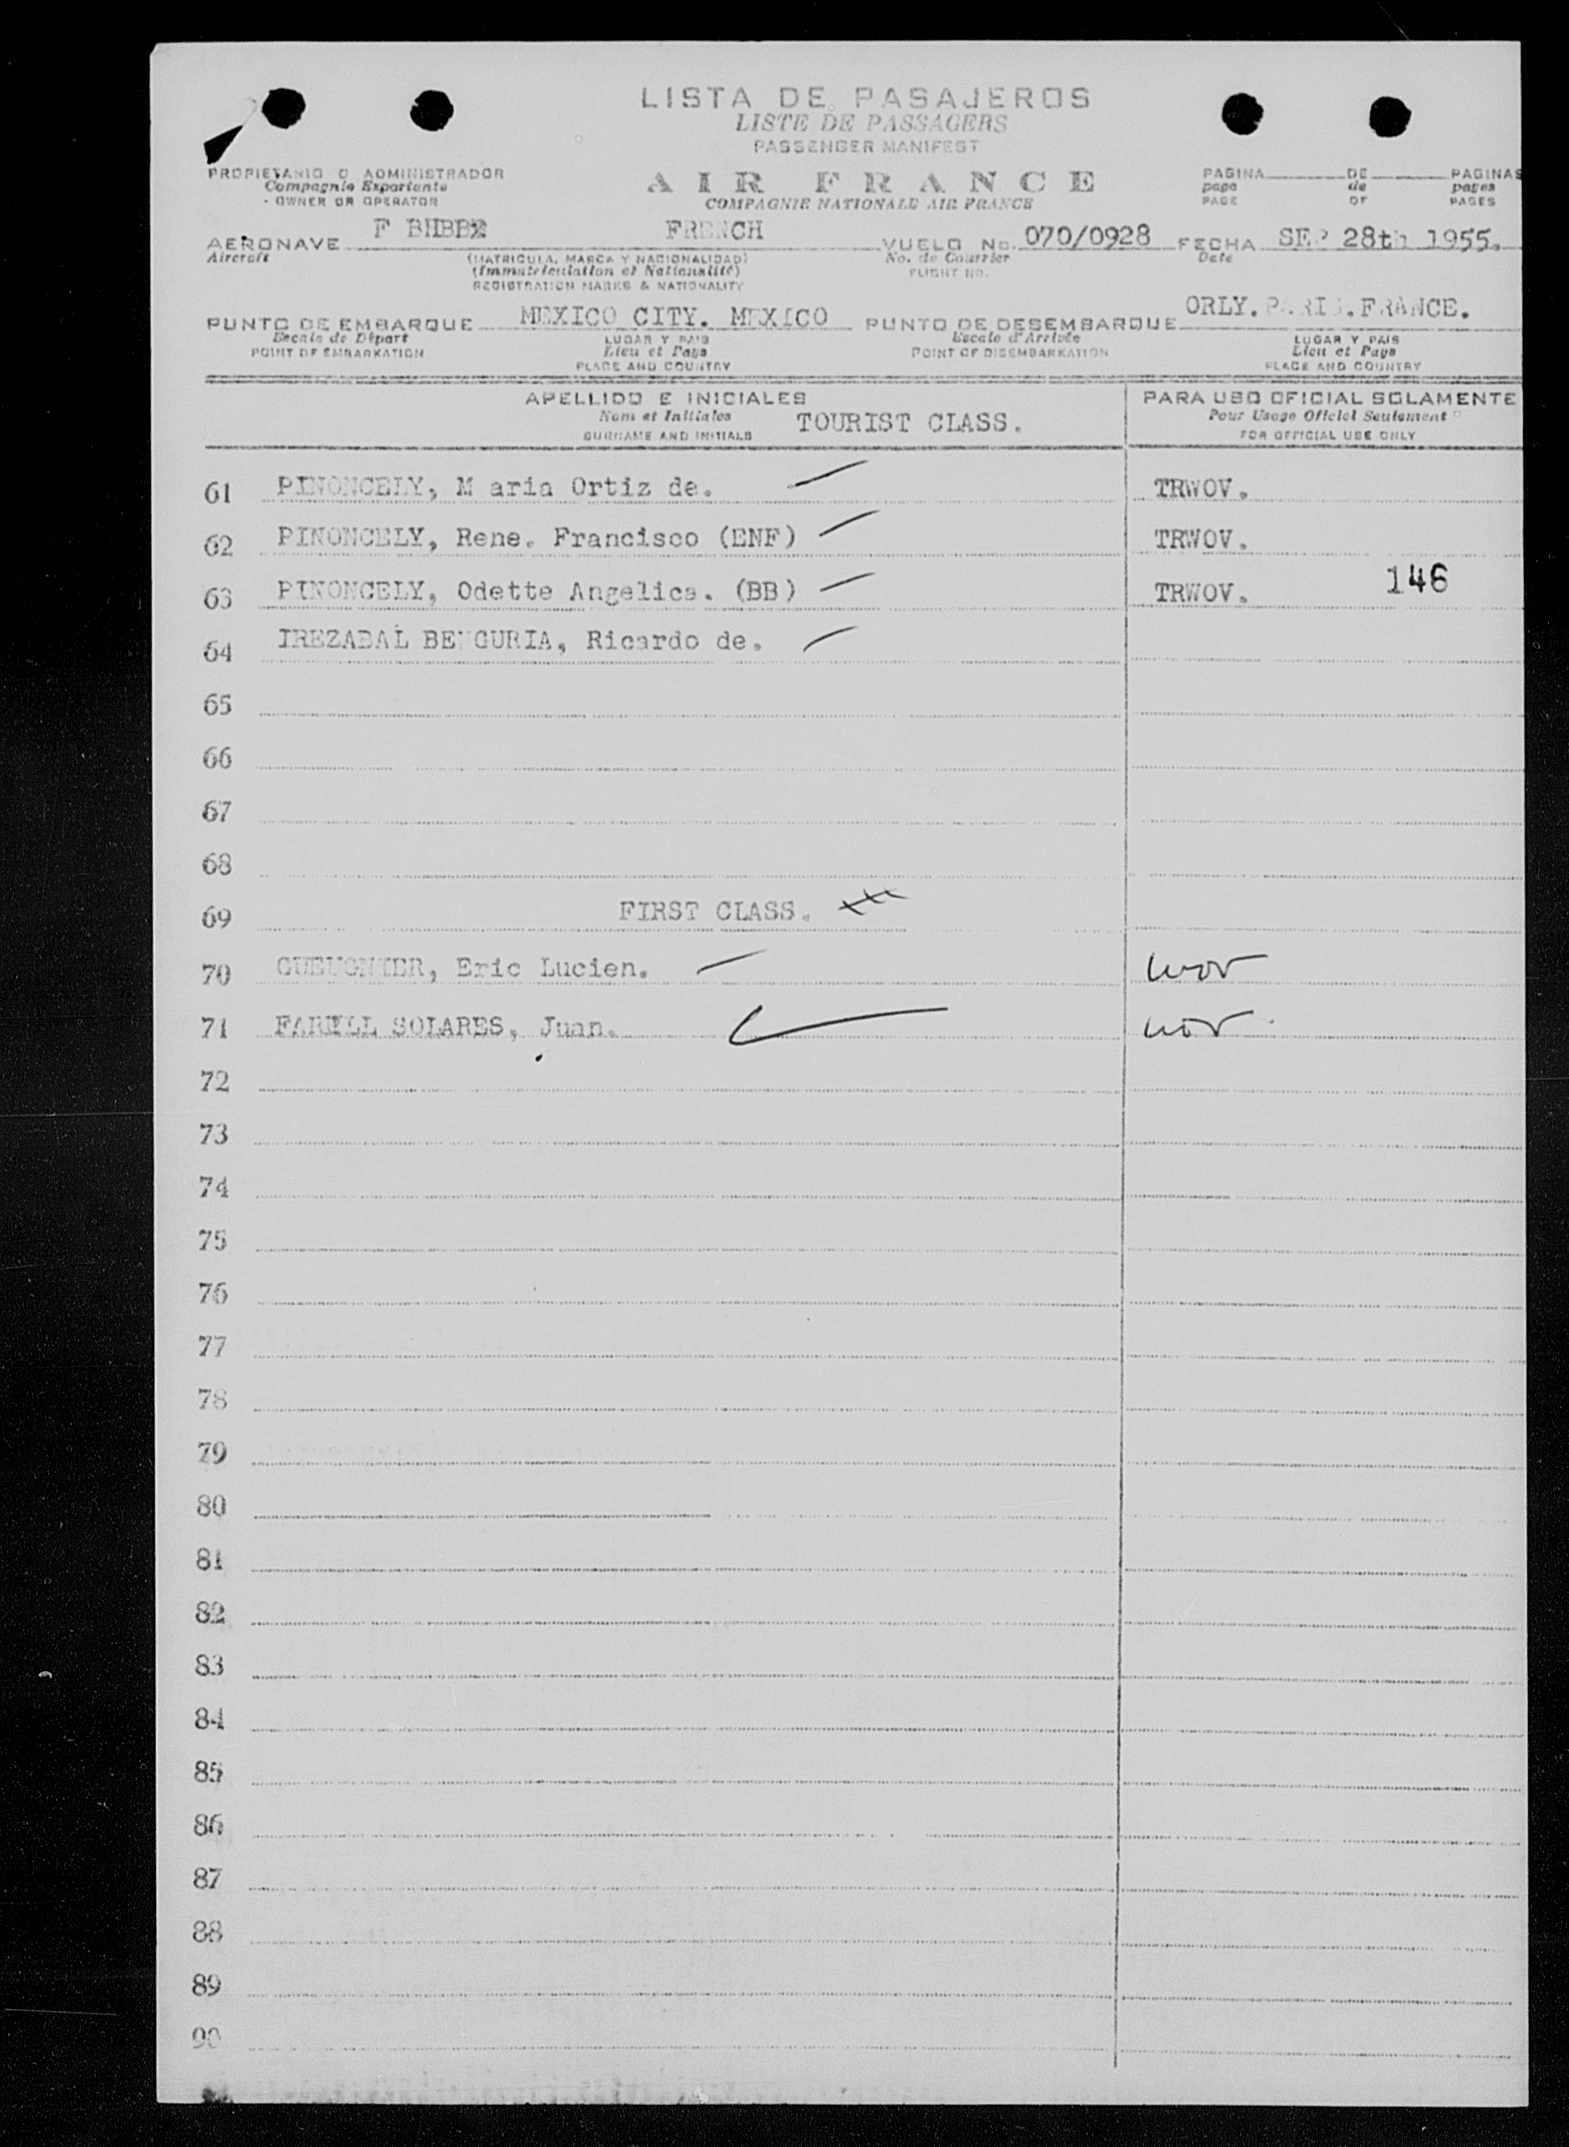 LISTA DE PASAJEROS
LISTE DE PASSAGERS
PASSENGER MANIFEST
PROPIETARIO O ADMINISTRADOR
Compagnie Exportante
OWNER OR OPERATOR
AIR FRANCE
COMPAGNIE NATIONALE AIR FRANCE
PAGINA DE PAGINAS
page de pages
PAGE OF PAGES
AERONAVE F BHBB FRENCH VUELO No. 070/0928 FECHA SEP 28th 1955.
Aircraft (MATRICULA, MARCA Y NACIONALIDAD) No. de Courrier Date
(Immatriculation et Nationalité) FLIGHT NO.
REGISTRATION MARKS & NATIONALITY
PUNTO DE EMBARQUE MEXICO CITY. MEXICO PUNTO DE DESEMBARQUE ORLY. PARIS. FRANCE.
Escale de Départ LUGAR Y PAIS Escale d'Arrivée LUGAR Y PAIS
POINT OF EMBARKATION Lieu et Pays POINT OF DISEMBARKATION Lieu et Pays
PLACE AND COUNTRY PLACE AND COUNTRY
APELLIDO E INICIALES PARA USO OFICIAL SOLAMENTE
Nom et Initiales TOURIST CLASS. Pour Usage Officiel Seulement
SURNAME AND INITIALS FOR OFFICIAL USE ONLY
61 PINONCELY, M aria Ortiz de. TRWOV.
62 PINONCELY, Rene. Francisco (ENF) TRWOV.
63 PINONCELY, Odette Angelica. (BB) TRWOV. 146
64 IREZABAL BENGURIA, Ricardo de.
65
66
67
68
69 FIRST CLASS.
70 GUEUGNIER, Eric Lucien. wov
71 FARELL SOLARES, Juan. wov
72
73
74
75
76
77
78
79
80
81
82
83
84
85
86
87
88
89
90